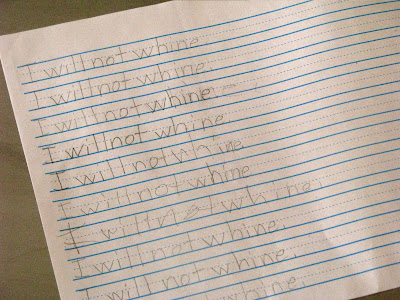 I will not whine
I will not whine
I will not whine
I will not whine
I will not whine
I will not whine
I will not whine.
I will not whine.
I will not whine.
I will not whine.